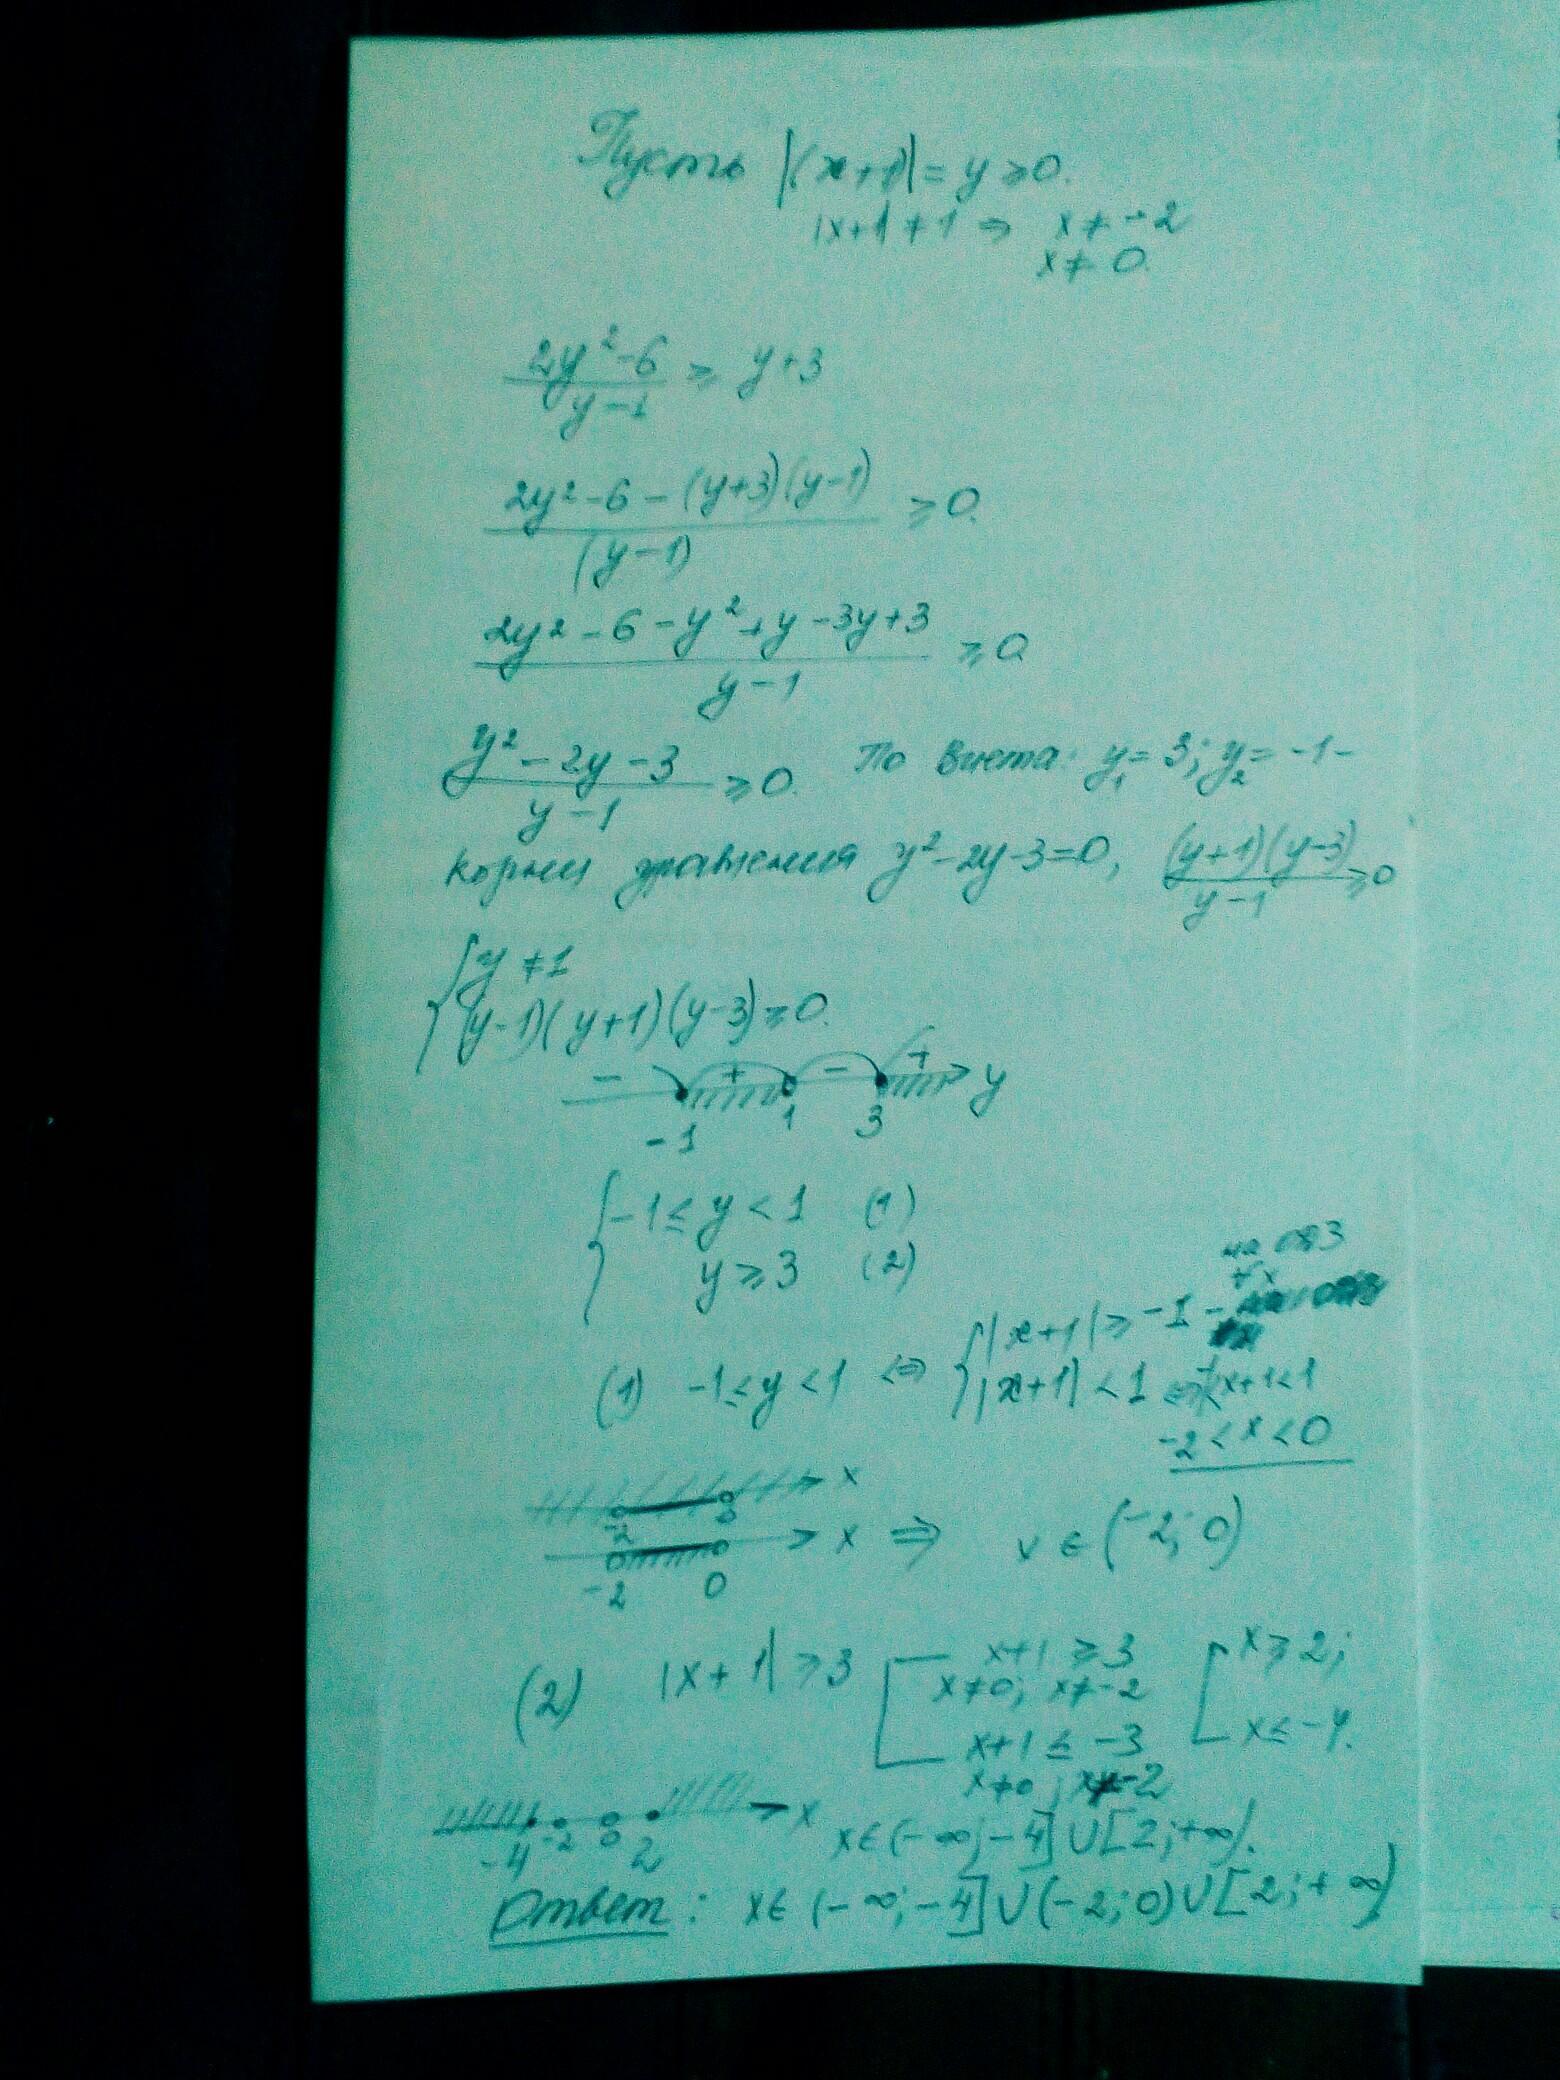 Пусть |(x+1)| = y ⩾ 0.
|x+1 ≠ 1 ⇒ x ≠ -2
x ≠ 0.
(2y² - 6)/(y - 1) ⩾ y + 3
(2y² - 6 - (y+3)(y-1))/((y-1)) ⩾ 0.
(2y² - 6 - y² + y - 3y + 3)/(y - 1) ⩾ 0
(y² - 2y - 3)/(y - 1) ⩾ 0. По Виета: y₁ = 3; y₂ = -1 -
корни уравнения y² - 2y - 3 = 0, ((y+1)(y-3))/(y-1) ⩾ 0
{ y ≠ 1
(y-1)(y+1)(y-3) ⩾ 0.
- + - + y
-1 1 3
{ -1 ≤ y < 1 (1)
y ⩾ 3 (2)
на ОДЗ
∀x
(1) -1 ≤ y < 1 ⇔ { |x+1| ⩾ -1 -
|x+1| < 1 ⇔ -1 < x+1 < 1
-2 < x < 0
x
-2 0
x ⇒ x ∈ (-2; 0)
-2 0
(2) |x+1| ⩾ 3 [ x+1 ⩾ 3 [ x ⩾ 2;
x ≠ 0; x ≠ -2
x+1 ≤ -3 x ≤ -4.
x ≠ 0; x ≠ -2
x x ∈ (-∞; -4] ∪ [2; +∞).
-4 -2 0 2
Ответ: x ∈ (-∞; -4] ∪ (-2; 0) ∪ [2; +∞)